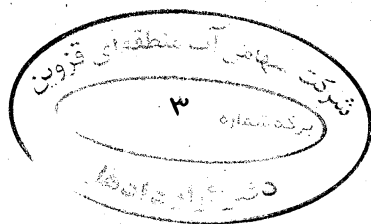 شرکت سهامی آب منطقه‌ای قزوین
برگه شماره ۳
دفتر قراردادها